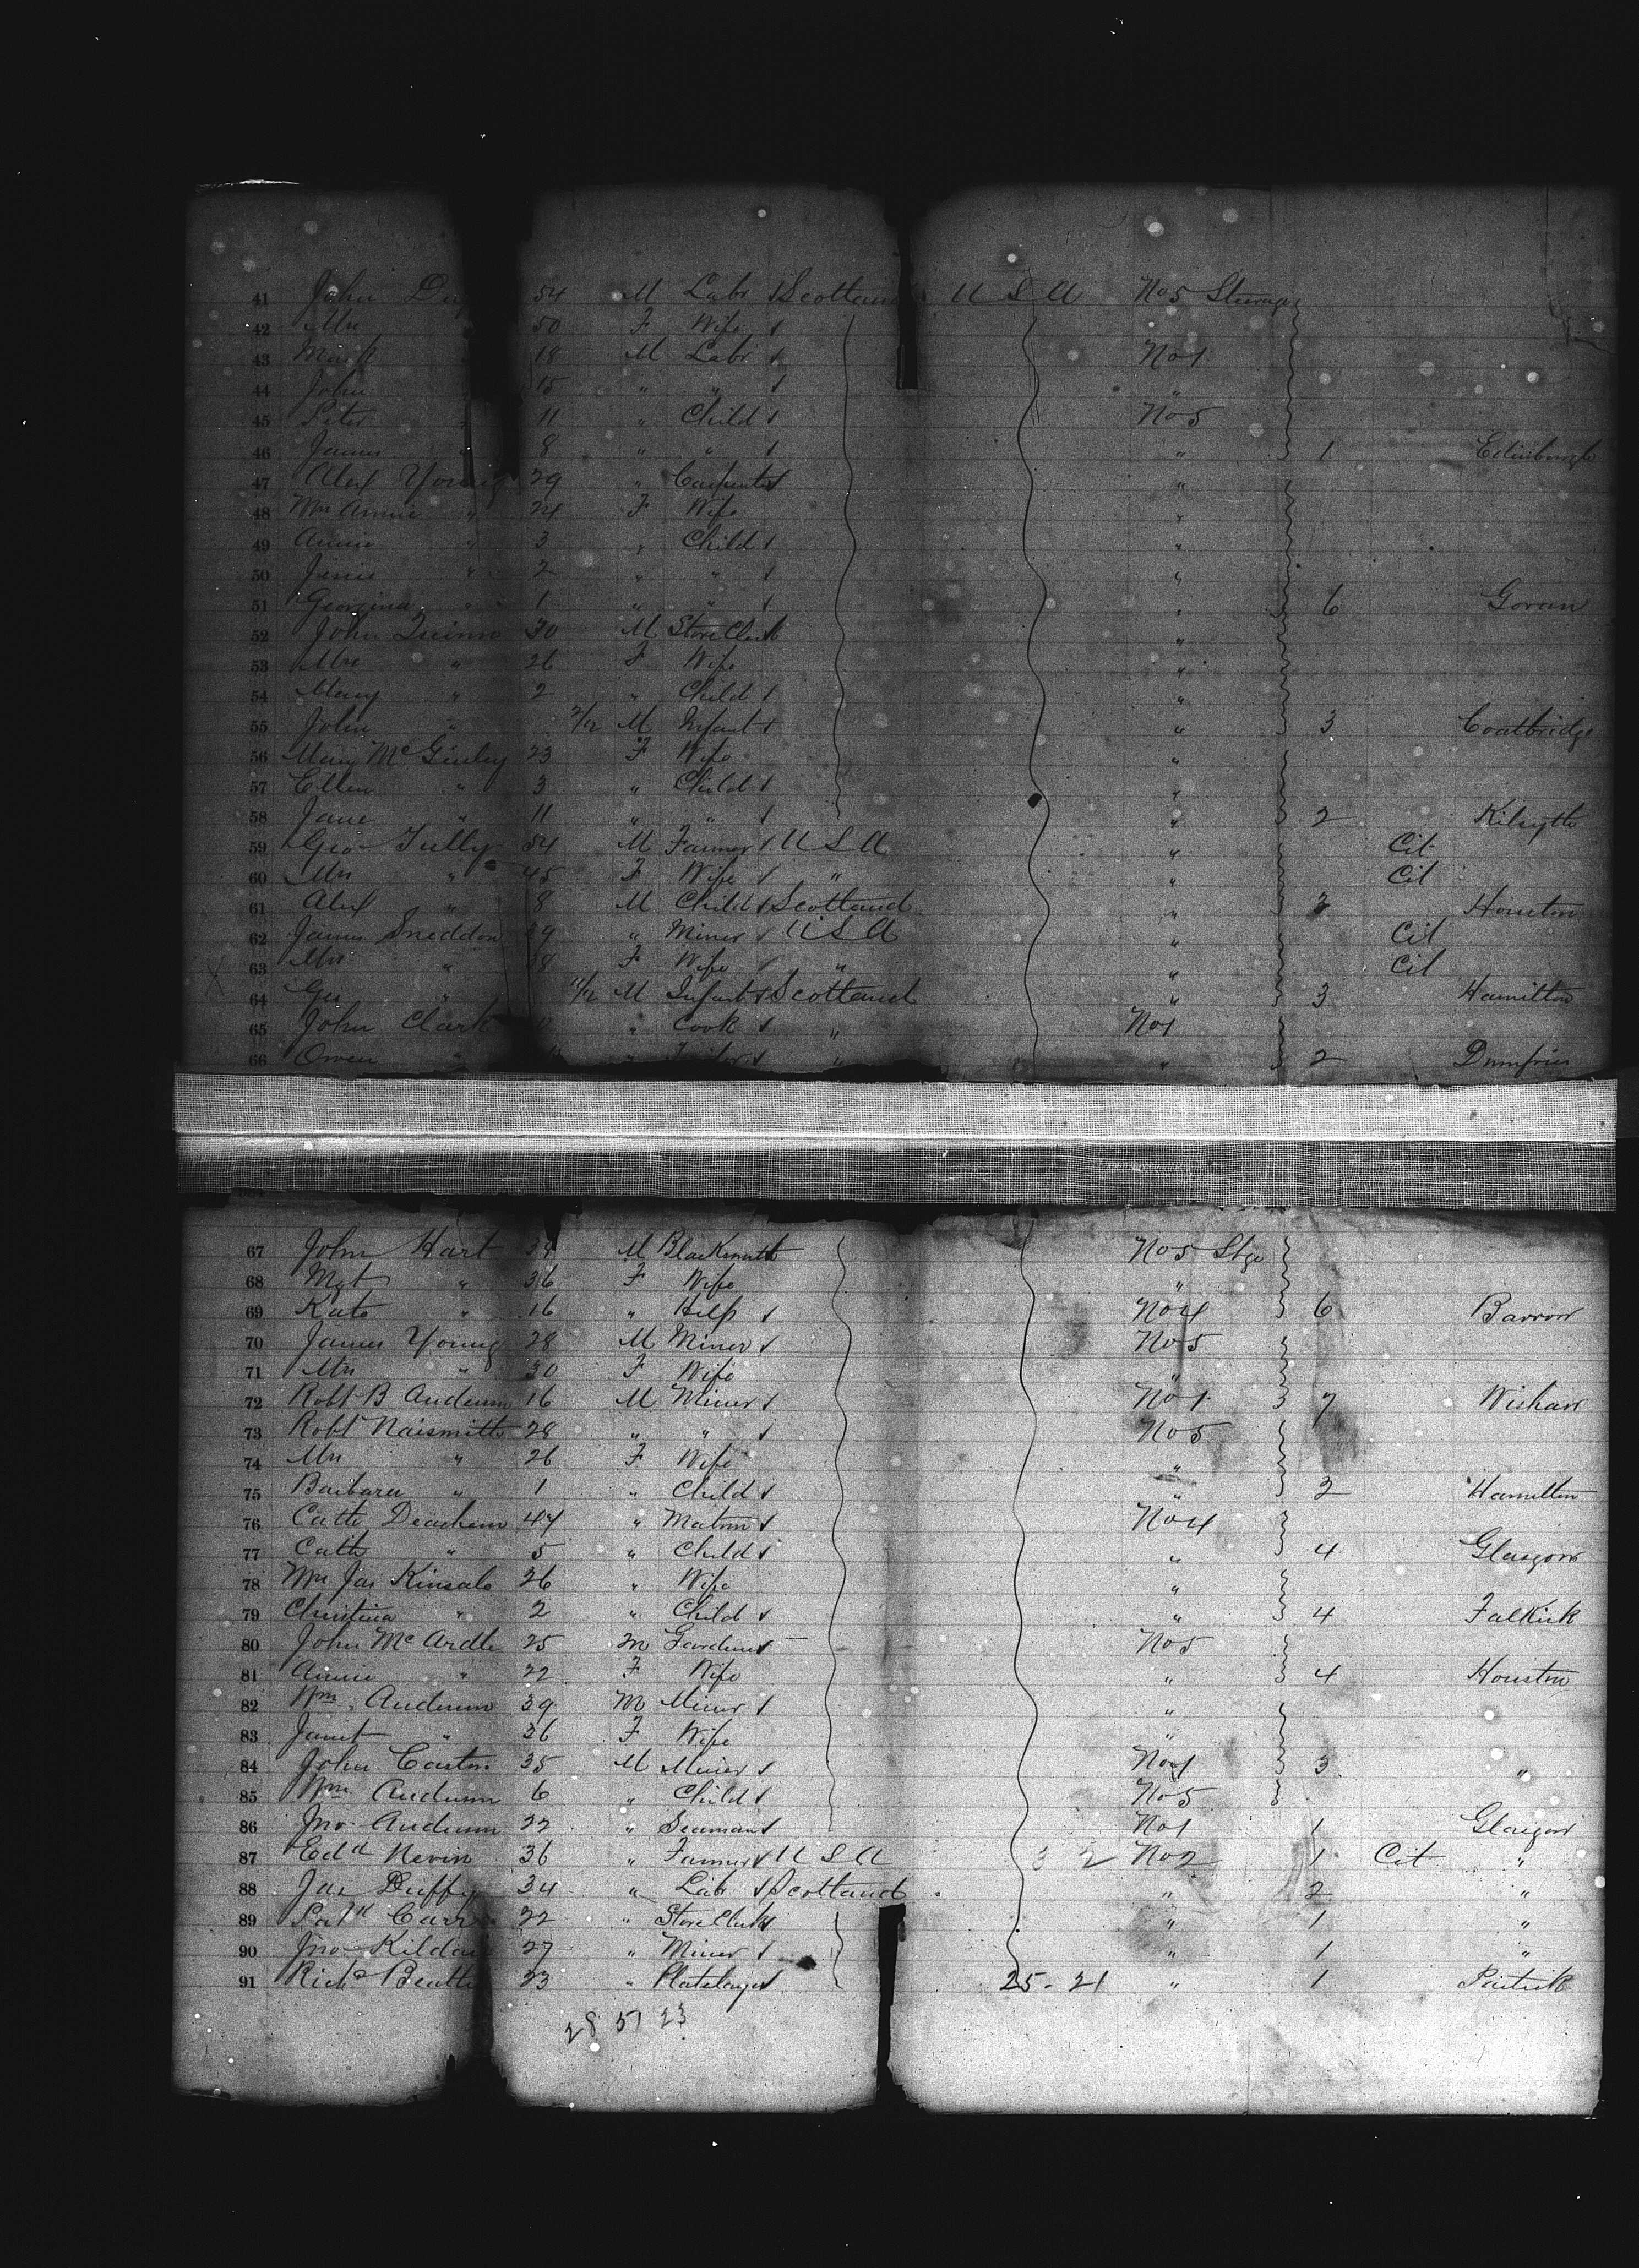 41 John 54 M Labr Scotland U S A No 5 Steerage
42 Mrs " 50 F Wife
43 Mark " 18 M Labr No 1
44 John " 15 " " "
45 Peter " 11 " Child No 5
46 James " 8 " " " 1 Edinburgh
47 Alex Young 29 " Carpenter "
48 Mrs Annie " 24 F Wife "
49 Annie " 3 " Child "
50 Jessie " 2 " " "
51 Georgina " 1 " " " 6 Govan
52 John Quinn 30 M Store Clerk "
53 Mrs " 26 F Wife "
54 Mary " 2 " Child "
55 John " M Infant " 3 Coatbridge
56 Mary McGinley 23 F Wife "
57 Ellen " 3 " Child "
58 Jane " 11 " " " 2 Kilsyth
59 Geo Tully 54 M Farmer U S A " Cit
60 Mrs " 45 F Wife " " Cit
61 Alex " 8 M Child Scotland " 3 Houston
62 James Sneddon 29 " Miner U S A " Cit
63 Mrs " F Wife " " Cit
64 Geo " 11/12 M Infant Scotland " 3 Hamilton
65 John Clark " Cook " No 1
66 Owen " " Tailor " " 2 Dumfries
67 John Hart M Blacksmith No 5 Stge
68 Mgt " 36 F Wife "
69 Kate " 16 " Help No 4 6 Barrow
70 James Young 28 M Miner No 5
71 Mrs " 30 F Wife "
72 Robt B Anderson 16 M Miner No 1 7 Wishaw
73 Robt Naismith 28 " " No 5
74 Mrs " 26 F Wife "
75 Barbara " 1 " Child " 2 Hamilton
76 Cath 44 " Matron No 4
77 Cath " 5 " Child " 4 Glasgow
78 Mrs Jas Kinsale 26 " Wife "
79 Christina " 2 " Child " 4 Falkirk
80 John McArdle 25 M Gardener No 5
81 Annie " 22 F Wife " 4 Houston
82 Wm Anderson 39 M Miner "
83 Janet " 36 F Wife "
84 John Caston 35 M Miner No 1 3 "
85 Wm Anderson 6 " Child No 5
86 Jno Anderson 22 " Seaman No 1 1 Glasgow
87 Edd Nevin 36 " Farmer U S A 3 2 No 2 1 Cit "
88 Jas Duffy 34 " Labr Scotland " 2 "
89 Patk Carr 22 " Store Clerk " 1 "
90 Jno 27 " Miner " 1 "
91 Richd 23 " Platelayer 25 - 21 " 1 Partick
28 51 23